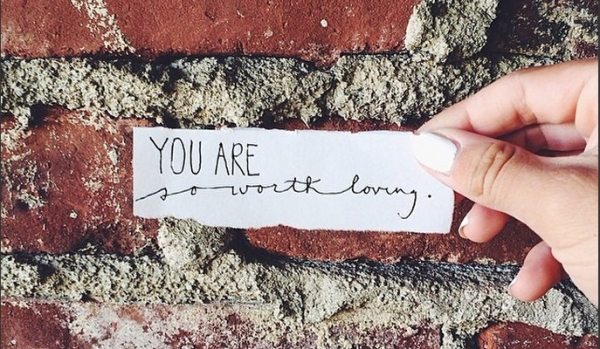 YOU ARE
so worth loving.